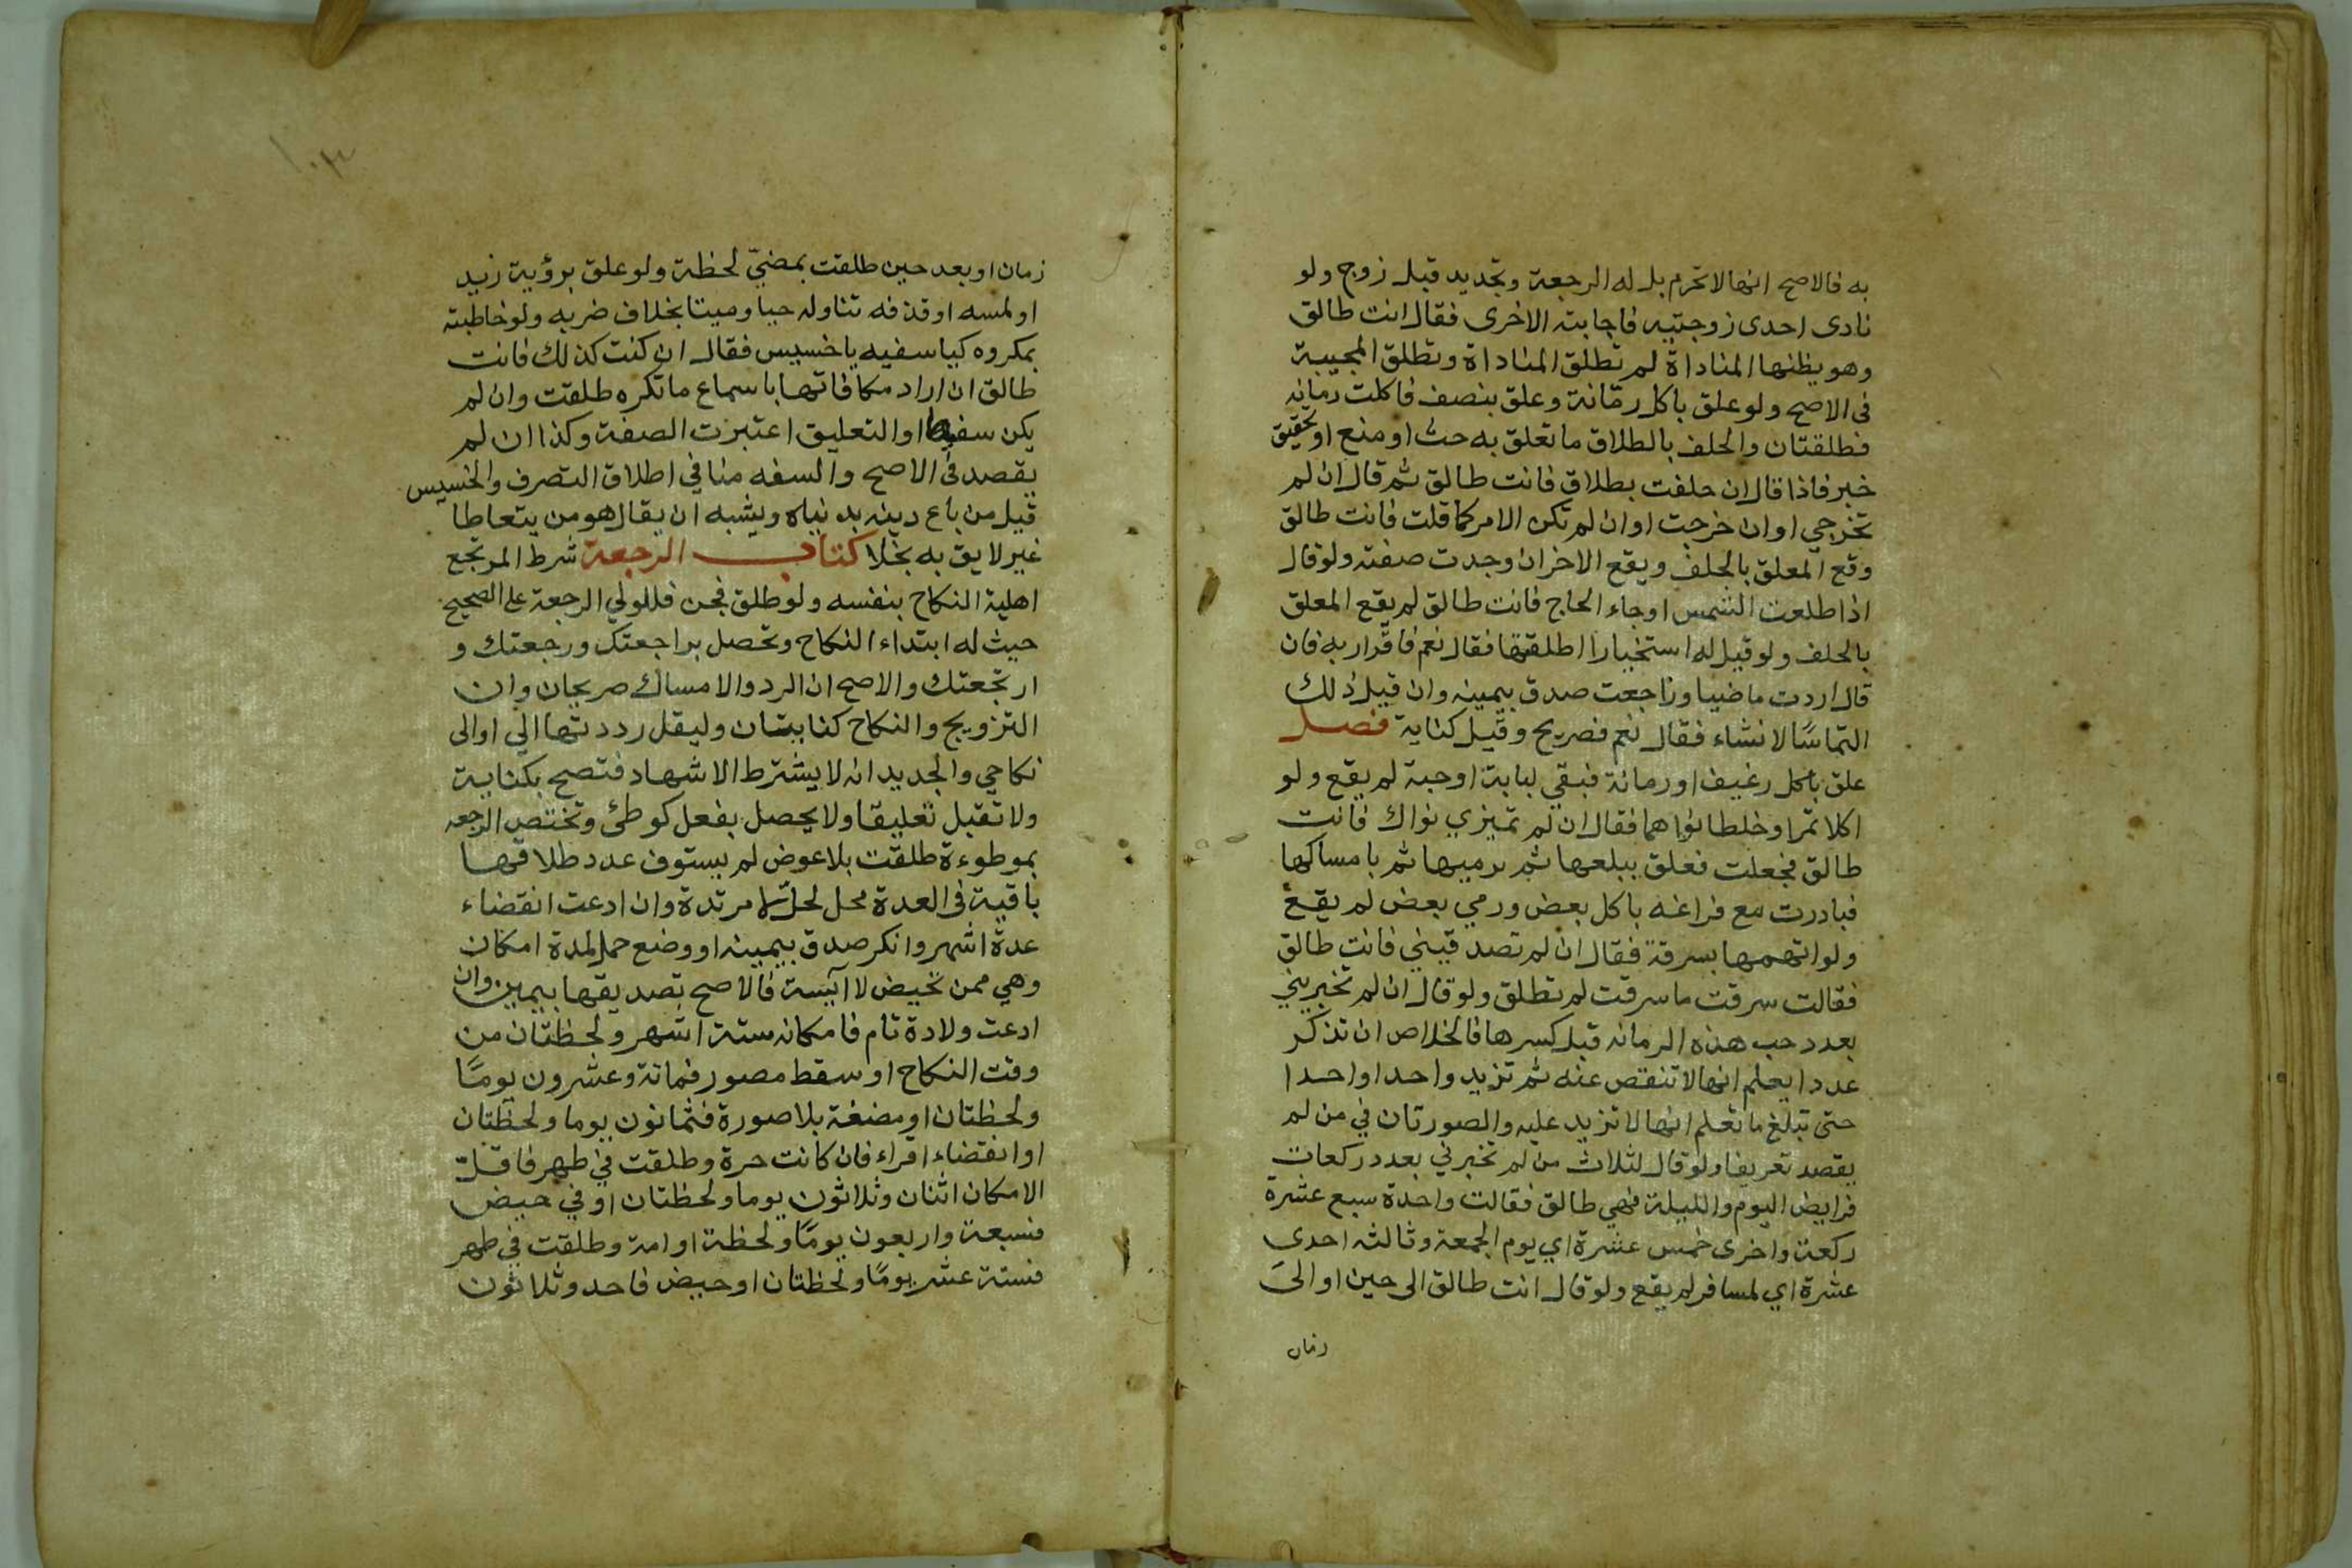 به فالاصح انها لا تحرم بل له الرجعة وتجديد قبل زوج ولو
نادى احدى زوجتيه فاجابته الاخرى فقال انت طالق
وهو يظنها المناداة لم تطلق المناداة وتطلق المجيبة
فى الاصح ولو علق باكل رمّانة وعلق بنصف فاكلت رمانه
فطلقتان والحلف بالطلاق ما تعلق به حث او منع او تحقيق
خبر فاذا قال ان حلفت بطلاق فانت طالق ثم قال ان لم
تخرجي او ان خرجت او ان لم تكن الامر كما قلت فانت طالق
وقع المعلق بالحلف ويقع الاخر ان وجدت صفته ولو قال
اذا طلعت الشمس او جاء الحاج فانت طالق لم يقع المعلق
بالحلف ولو قيل له استخبارا اطلقتها فقال نعم فاقرار به فان
قال اردت ماضيا وراجعت صدق بيمينه وان قيل ذلك
التماسًا لانشاء فقال نعم فصريح وقيل كناية فصل
علق باكل رغيف او رمانة فبقي لبابة او حبة لم يقع ولو
اكلا تمرا وخلطا نواهما فقال ان لم تميزي نواك فانت
طالق فجعلت فعلق ببلعها ثم برميها ثم بامساكها
فبادرت مع فراغه باكل بعض ورمي بعض لم يقع
ولو اتهمها بسرقة فقال ان لم تصدقيني فانت طالق
فقالت سرقت ما سرقت لم تطلق ولو قال ان لم تخبريني
بعدد حب هذه الرمانه قبل كسرها فالخلاص ان تذكر
عددا يعلم انها لا تنقص عنه ثم تزيد واحدا واحدا
حتى تبلغ ما تعلم انها لا تزيد عليه والصورتان في من لم
يقصد تعريفا ولو قال لثلاث من لم تخبرني بعدد ركعات
فرايض اليوم والليلة فهي طالق فقالت واحدة سبع عشرة
ركعة واخرى خمس عشرة اي يوم الجمعة وثالثه احدى
عشرة اي لمسافر لم يقع ولو قال انت طالق الى حين او الى
زمان
١٠٣
زمان او بعد حين طلقت بمضيّ لحظة ولو علق برؤية زيد
او لمسه او قذفه تناوله حيا وميتا بخلاف ضربه ولو خاطبته
بمكروه كيا سفيه يا خسيس فقال ان كنت كذلك فانت
طالق ان اراد مكافاتها باسماع ما تكره طلقت وان لم
يكن سفيها او التعليق اعتبرت الصفة وكذا ان لم
يقصد فى الاصح والسفه منافي اطلاق التصرف والخسيس
قيل من باع دينه بدنياه ويشبه ان يقال هو من يتعاطا
غير لايق به بخلا كتاب الرجعة شرط المرتجع
اهلية النكاح بنفسه ولو طلق فجن فللولي الرجعة على الصحيح
حيث له ابتداء النكاح وتحصل براجعتك ورجعتك و
ارتجعتك والاصح ان الرد والامساك صريحان وان
التزويج والنكاح كنايتان وليقل رددتها الي او الى
نكاحي والجديد انه لا يشترط الاشهاد فتصح بكناية
ولا تقبل تعليقا ولا يحصل بفعل كوطئ وتختص الرجعه
بموطوءة طلقت بلا عوض لم يستوف عدد طلاقها
باقية فى العدة محل لحلّ لا مرتدة وان ادعت انقضاء
عدة اشهر وانكر صدق بيمينه او وضع حمل لمدة امكان
وهي ممن تحيض لا آيسة فالاصح تصديقها بيمين وان
ادعت ولادة تام فامكانه ستة اشهر ولحظتان من
وقت النكاح او سقط مصور فمائة وعشرون يومًا
ولحظتان او مضغة بلا صورة فثمانون يوما ولحظتان
او انقضاء اقراء فان كانت حرة وطلقت في طهر فاقلّ
الامكان اثنان وثلاثون يوما ولحظتان او في حيض
فسبعة واربعون يومًا ولحظة او امة وطلقت في طهر
فستة عشر يومًا ولحظتان او حيض فاحد وثلاثون